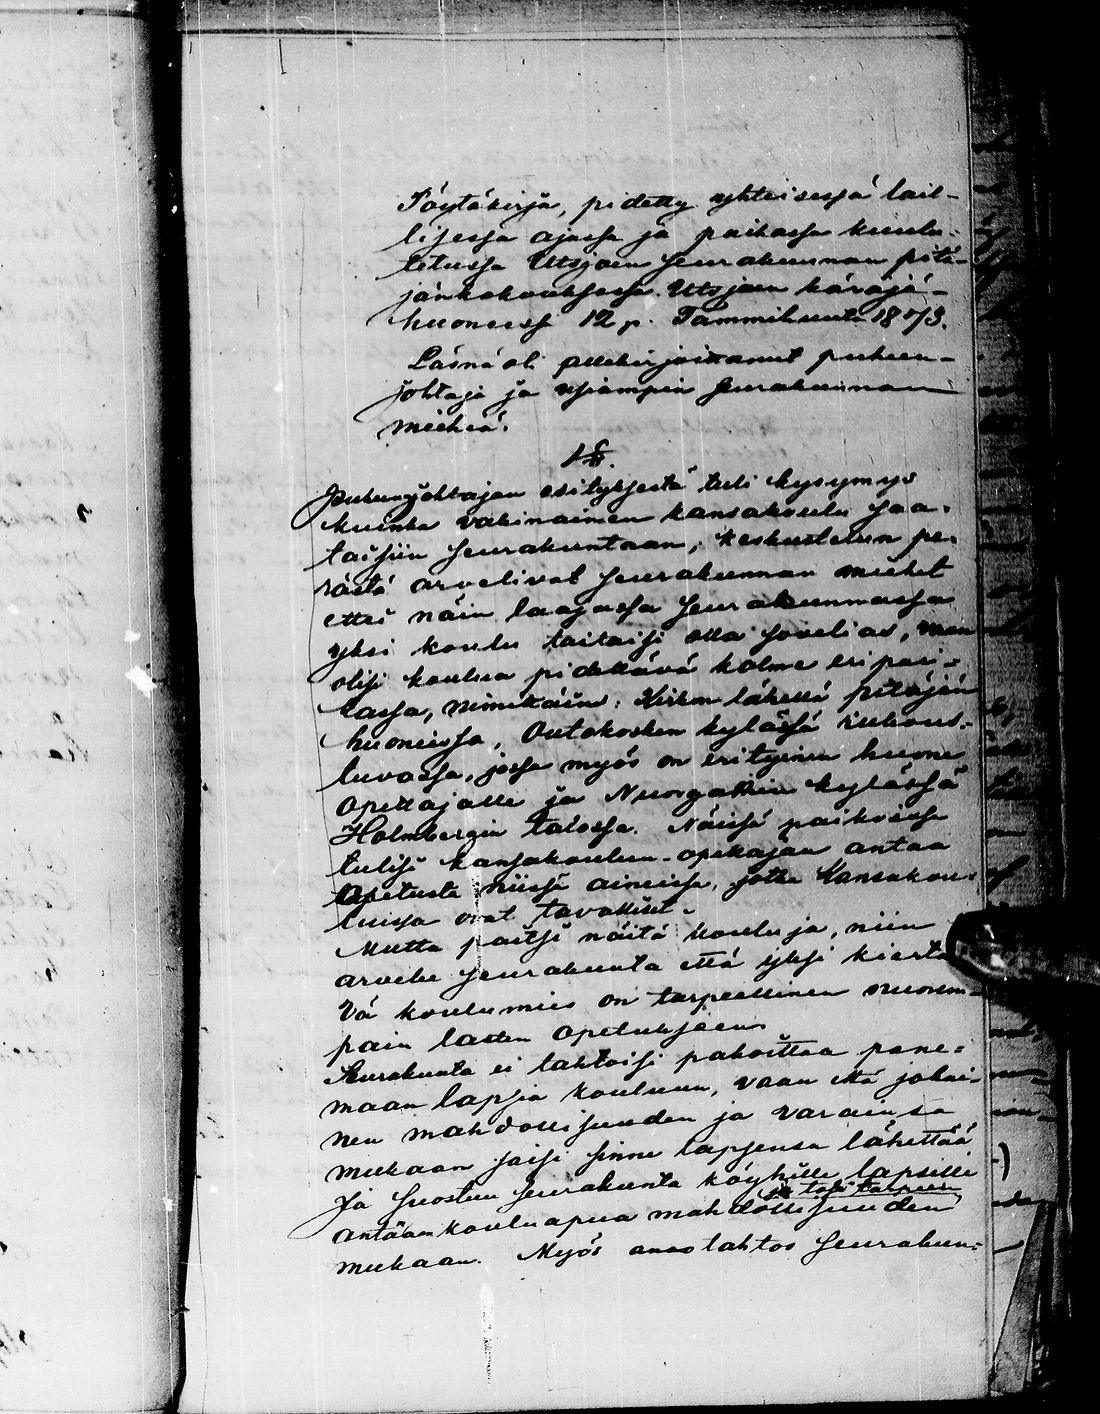 Pöytäkirja, pidetty yhteisessä lail-
lisessa ajassa ja paikassa kuulu-
tetussa Utsjoen seurakunnan pitä-
jänkokouksessa Utsjoen käräjä-
huoneessa 12 p. Tammikuuta 1873.
Läsnä oli allekirjoittanut puheen-
johtaja ja useampia seurakunnan
miehiä.
1 §.
Puhenjohtajan esityksestä tuli kysymys
kuinka vakinainen kansakoulu saa-
taisiin seurakuntaan; keskustelun pe-
rästä arvelivat seurakunnan miehet
ettei näin laajassa seurakunnassa
yksi koulu taitaisi olla sovelias, vaan
olisi koulua pidettävä kolme eri pai-
kassa, nimittäin: Kirkon läkellä pitäjän
huoneissa, Outakosken kylässä rukous-
luvassa, jossa myös on erityinen huone
Opettajalle ja Nuorgamin kylässä
Holmbergin talossa. Näissä paikoissa
tulisi kansakoulun-opettajan antaa
Opetusta niissä aineissa, jotka Kansakou-
luissa ovat tavalliset.
Mutta paitsi näitä kouluja, niin
arvelee seurakunta että yksi kiertä
vä koulumies on tarpeellinen nuorem-
pain lasten opetukseen.
Seurakunta ei tahtoisi pakoittaa pane-
maan lapsia kouluun, vaan että jokai-
nen mahdollisuuden ja varainsa
mukaan saisi sinne lapsensa lähettää
Ja suostuu seurakunta köyhille lapsille
ja tosi tarpeen
antaan kouluapua mahdollisuuden
mukaan. Myös anoo tahtoo seurakun-